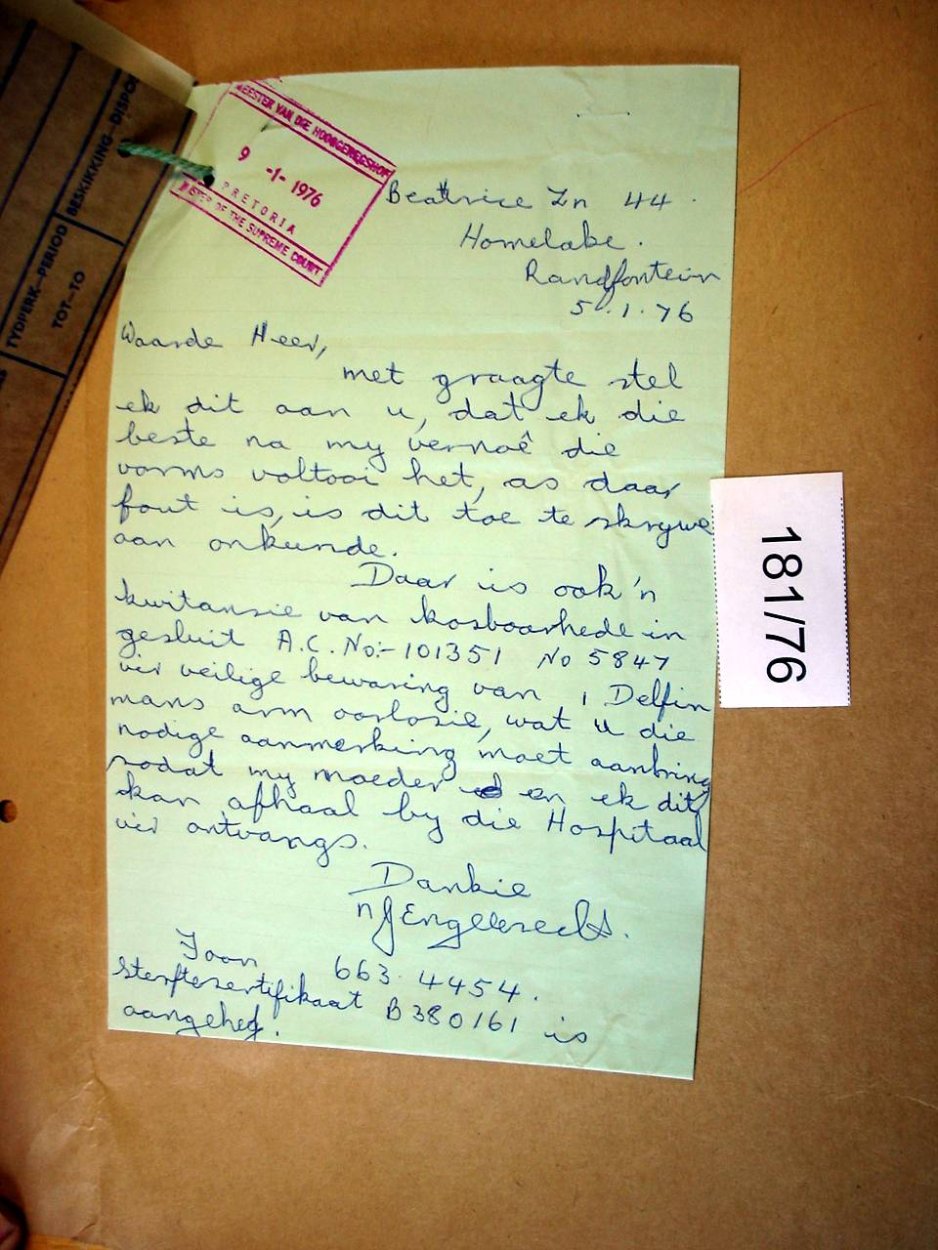 BESKIKKING–DISPO
TYDPERK–PERIOD
TOT–TO
MEESTER VAN DIE HOOGGEREGSHOF
9 -1- 1976
PRETORIA
MASTER OF THE SUPREME COURT
Beatrice Ln 44.
Homelake.
Randfontein
5.1.76
Waarde Heer,
met graagte stel
ek dit aan u, dat ek die
beste na my vernoë die
vorms voltooi het, as daar
fout is, is dit toe te skrywe
aan onkunde.
Daar is ook 'n
kwitansie van kosbaarhede in
gesluit A.C. No:- 101351 No 5847
vir veilige bewaring van 1 Delfin
mans arm oorlosie, wat u die
nodige aanmerking moet aanbring
sodat my moeder en ek dit
kan afhaal by die Hospitaal
vir ontvangs.
Dankie
Engelbrecht.
663 4454.
Sterftesertifikaat B380161 is
aangeheg.
181/76